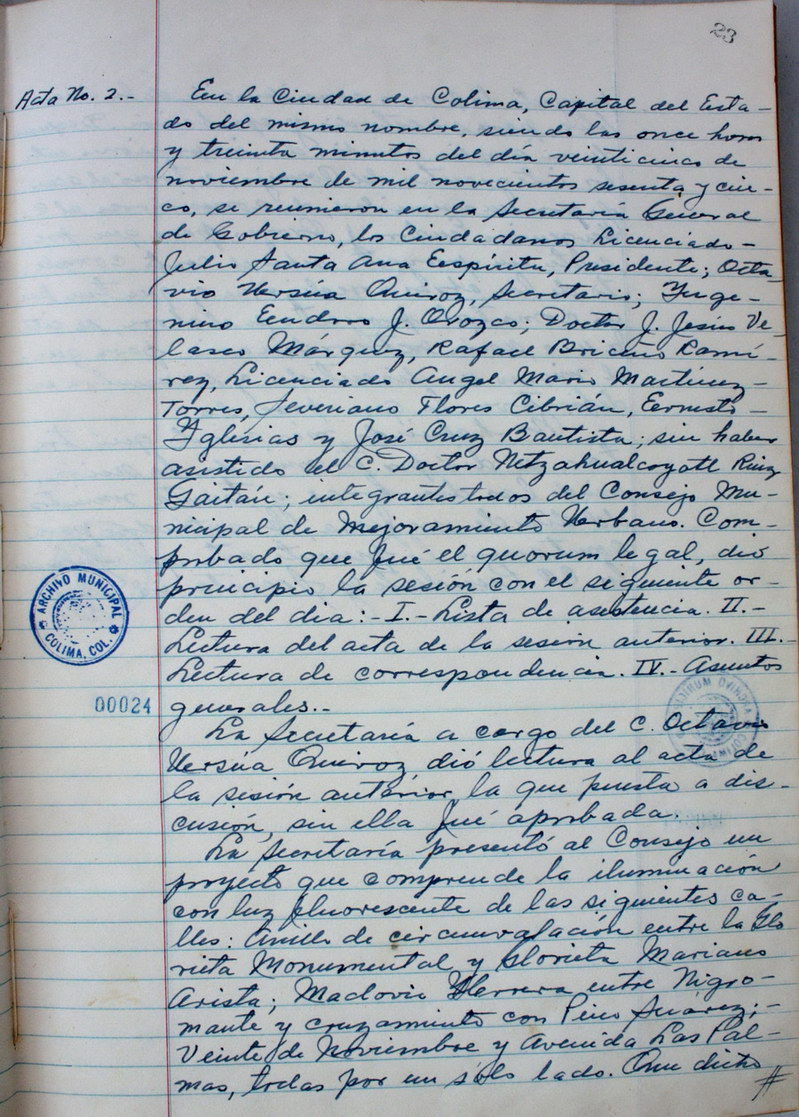 23
Acta No. 2.-
En la Ciudad de Colima, Capital del Esta-
do del mismo nombre, siendo las once horas
y treinta minutos del día veinticinco de
noviembre de mil novecientos sesenta y cin-
co, se reunieron en la Secretaría General
de Gobierno, los Ciudadanos Licenciado-
Julio Santa Ana Espíritu, Presidente; Octa-
vio Versúa Quiroz, Secretario; Inge-
niero Eudoro J. Orozco; Doctor J. Jesús Ve-
lasco Márquez, Rafael Briceño Ramí-
rez, Licenciado Angel Mario Martínez-
Torres, Severiano Flores Cibrián, Ernesto-
Yglesias y José Cruz Bautista; sin haber
asistido el C. Doctor Netzahualcoyotl Ruiz
Gaitán; integrantes todos del Consejo Mu-
nicipal de Mejoramiento Urbano. Com-
probado que fué el quorum legal, dió
principio la sesión con el siguiente or-
den del dia:- I.- Lista de asistencia. II.-
Lectura del acta de la sesión anterior. III.-
Lectura de correspondencia. IV.- Asuntos
generales.-
ARCHIVO MUNICIPAL
COLIMA, COL.
00024
La Secretaría a cargo del C. Octavio
Versúa Quiroz dió lectura al acta de
la sesión anterior, la que puesta a dis-
cusión, sin ella fué aprobada.
La Secretaría presentó al Consejo un
proyecto que comprende la iluminación
con luz fluorescente de las siguientes ca-
lles: Anillo de circunvalación entre la Glo
rieta Monumental y Glorieta Mariano
Arista; Maclovio Herrera entre Nigro-
mante y cruzamiento con Pino Suárez;-
Veinte de Noviembre y Avenida Las Pal-
mas, todas por un sólo lado. Que dicho